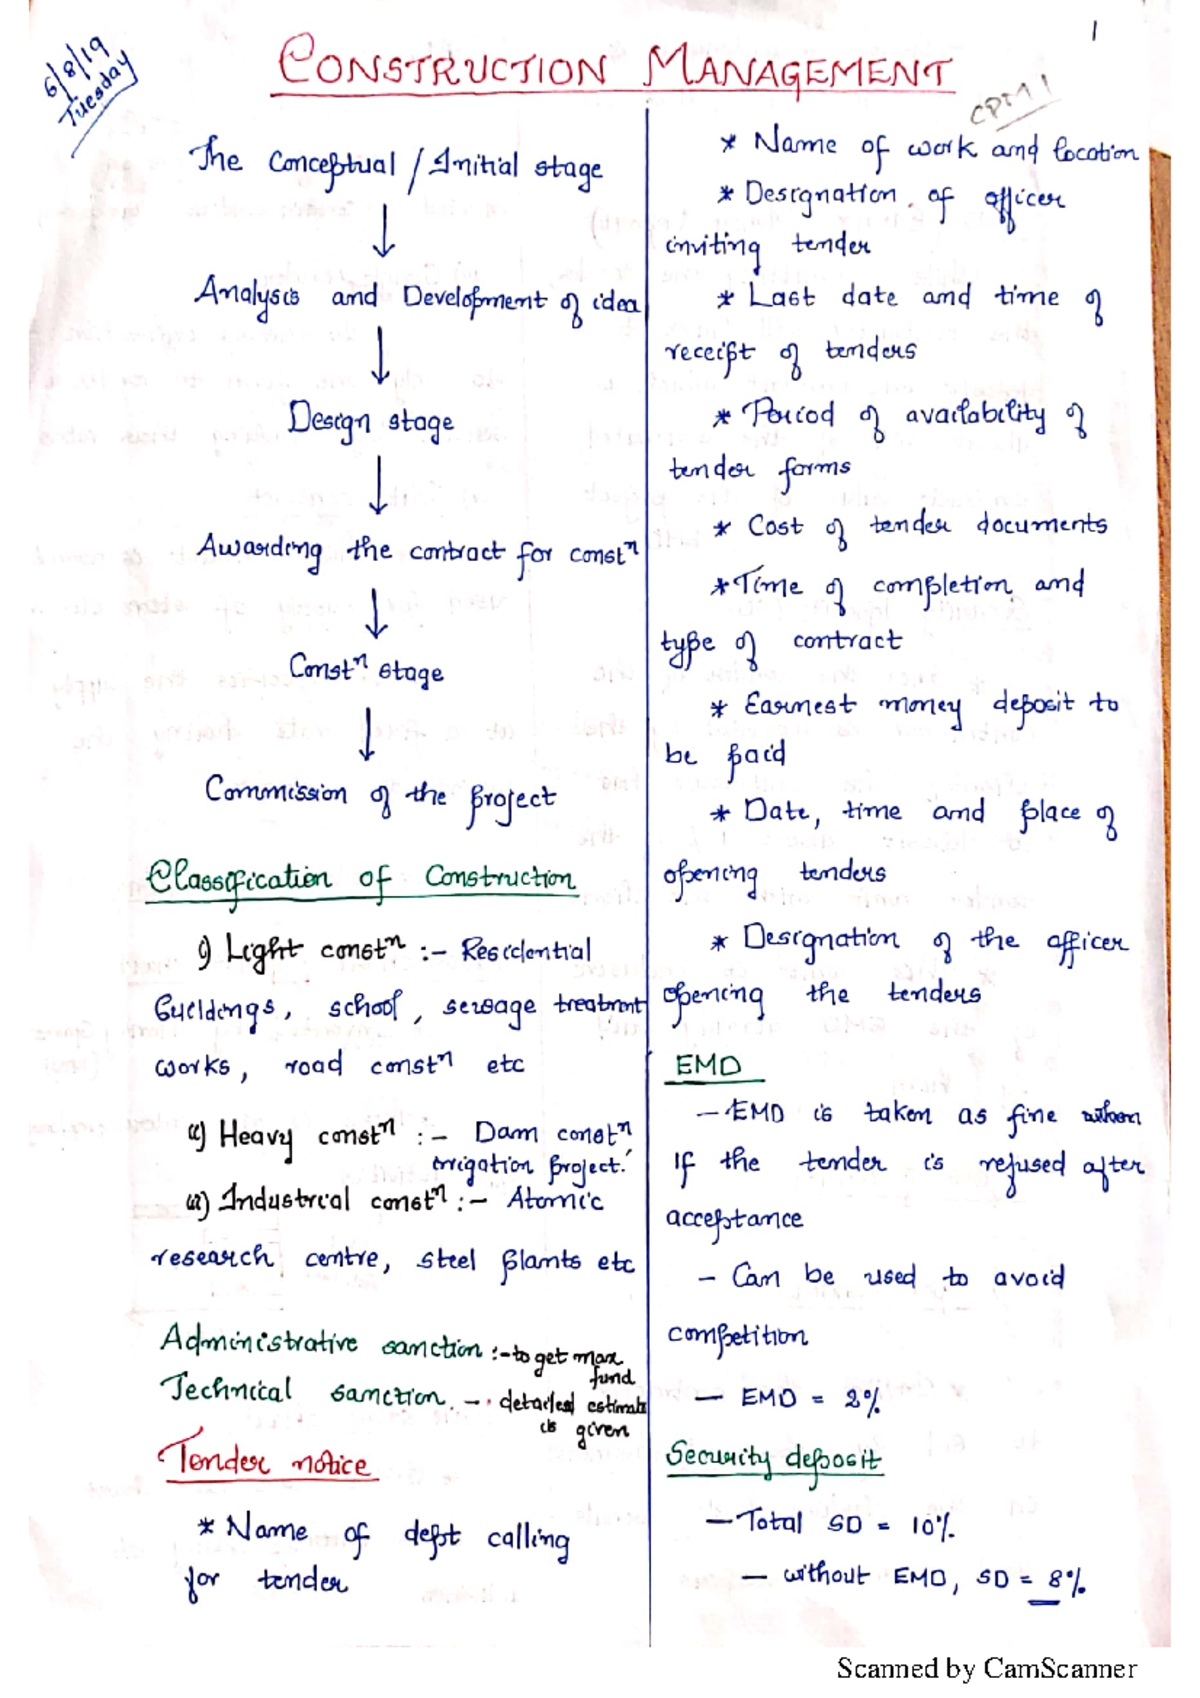 6/8/19
Tuesday
1
CONSTRUCTION MANAGEMENT
CPM 1
The Conceptual / Initial stage
↓
Analysis and Development of idea
↓
Design stage
↓
Awarding the contract for constⁿ
↓
Constⁿ stage
↓
Commission of the project
Classification of Construction
i) Light constⁿ :- Residential
buildings, school, sewage treatment
works, road constⁿ etc
ii) Heavy constⁿ :- Dam constⁿ
irrigation project.
iii) Industrial constⁿ :- Atomic
research centre, steel plants etc
Administrative sanction :- to get max
fund
Technical sanction. - detailed estimate
is given
Tender notice
* Name of dept calling
for tender
* Name of work and location
* Designation of officer
inviting tender
* Last date and time of
receipt of tenders
* Period of availability of
tender forms
* Cost of tender documents
* Time of completion and
type of contract
* Earnest money deposit to
be paid
* Date, time and place of
opening tenders
* Designation of the officer
opening the tenders
EMD
- EMD is taken as fine when
if the tender is refused after
acceptance
- Can be used to avoid
competition
- EMD = 2%
Security deposit
- Total SD = 10%
- without EMD, SD = 8%
Scanned by CamScanner